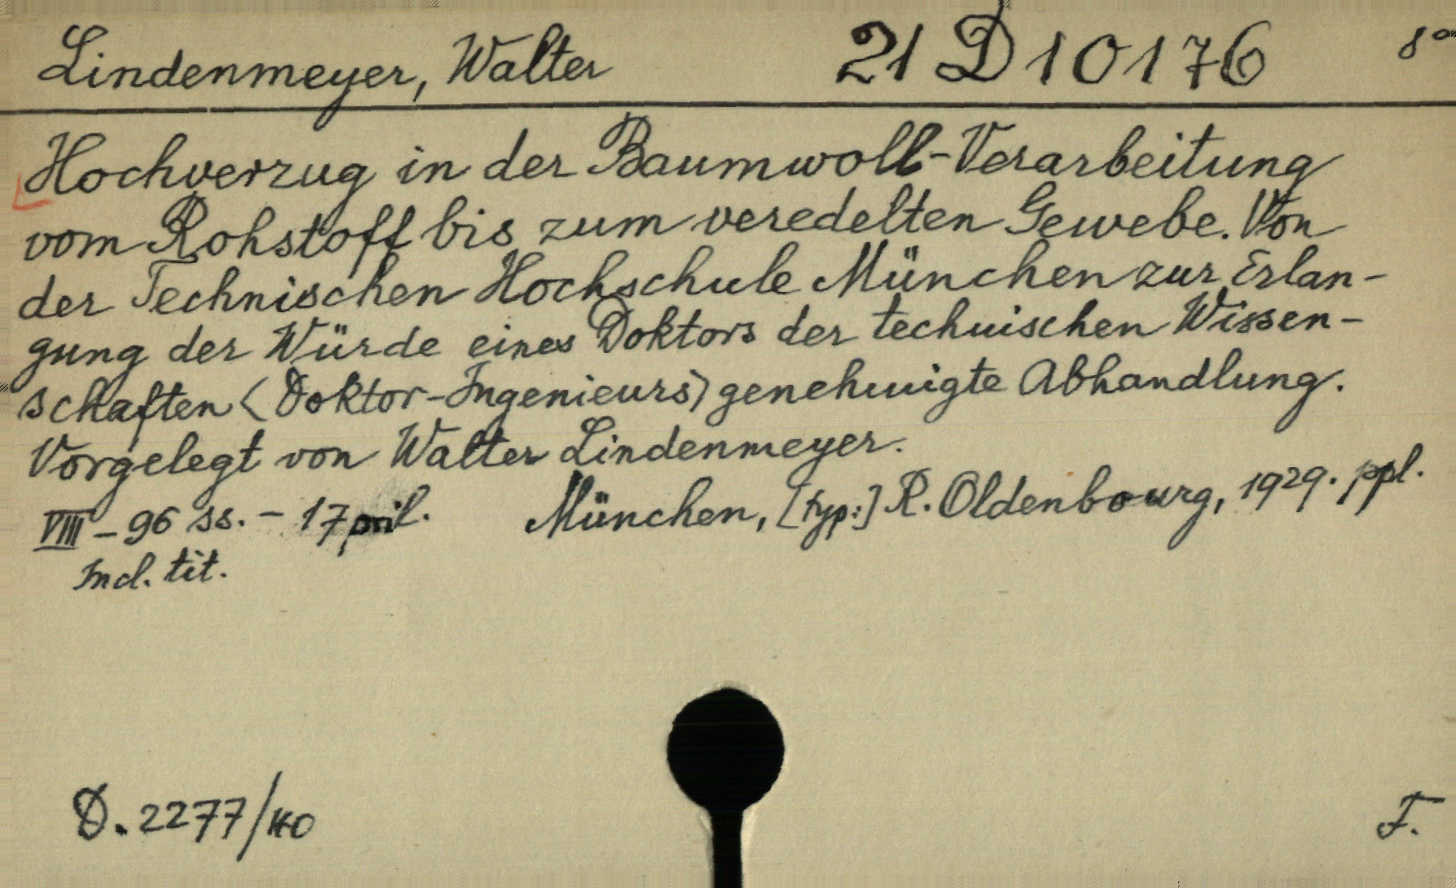 Lindenmeyer, Walter 21 D 10176 8°
Hochverzug in der Baumwoll-Verarbeitung
vom Rohstoff bis zum veredelten Gewebe. Von
der Technischen Hochschule München zur Erlan-
gung der Würde eines Doktors der technischen Wissen-
schaften (Doktor-Ingenieurs) genehmigte Abhandlung.
Vorgelegt von Walter Lindenmeyer.
VIII - 96 ss. - 1 München, [typ:] R. Oldenbourg, 1929. ppl.
Incl. tit.
D. 2277/40
F.